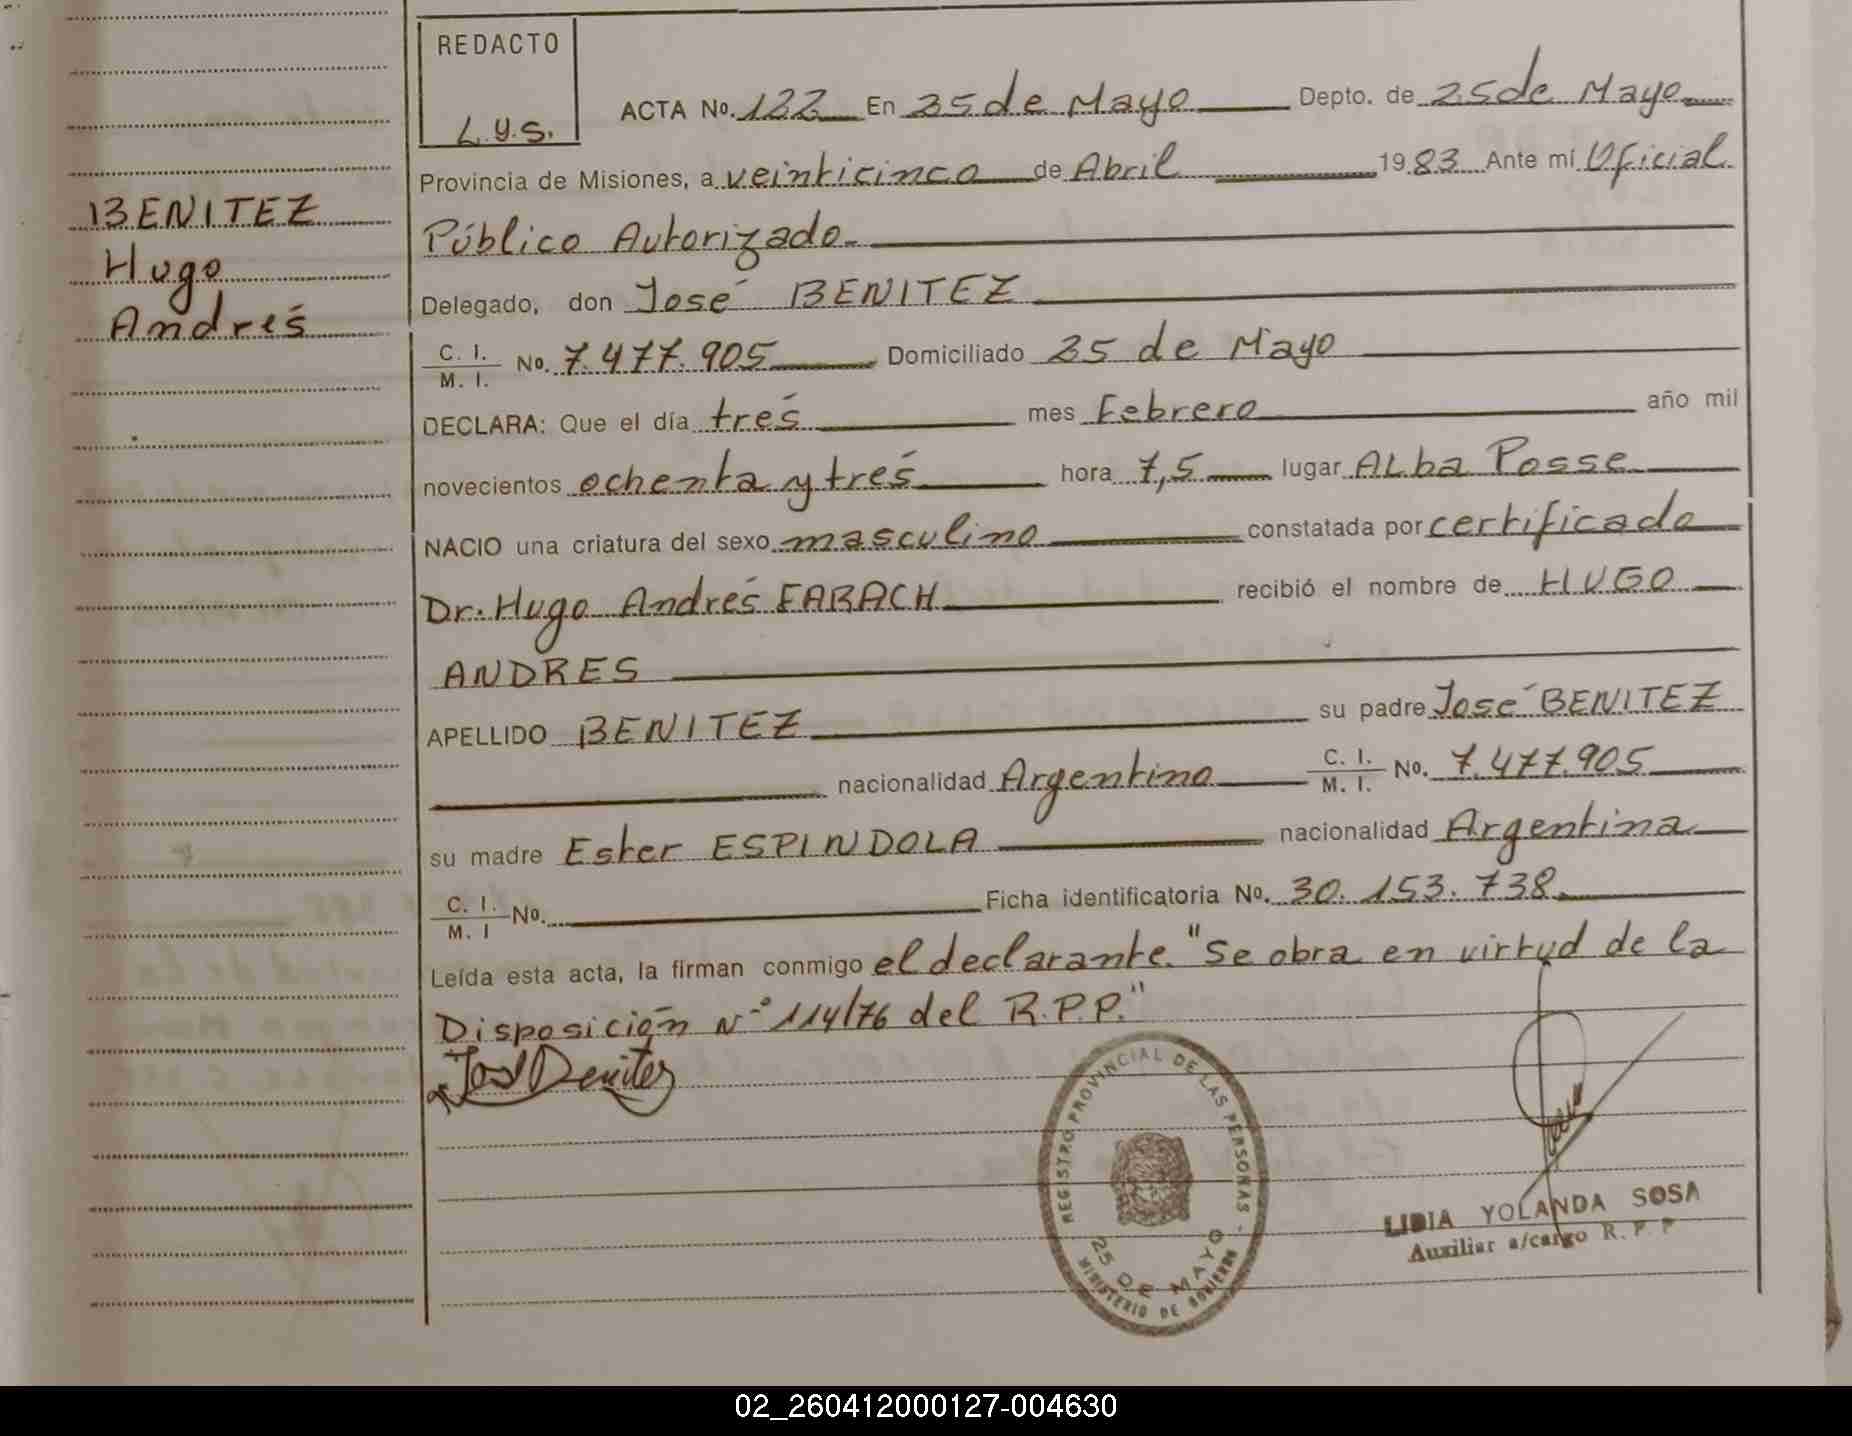 REDACTO
L.Y.S.
ACTA No. 122 En 25 de Mayo Depto. de 25 de Mayo
Provincia de Misiones, a veinticinco de Abril 1983 Ante mí Oficial
Público Autorizado.
Delegado, don José BENITEZ
C. I. / M. I. No. 7.477.905 Domiciliado 25 de Mayo
DECLARA: Que el día trés mes Febrero año mil
novecientos ochenta y trés hora 7,5 lugar ALba Posse
NACIO una criatura del sexo masculino constatada por certificado
Dr. Hugo Andrés FARACH recibió el nombre de HUGO
ANDRES
APELLIDO BENITEZ su padre José BENITEZ
nacionalidad Argentino C. I. / M. I. No. 7.477.905
su madre Ester ESPINDOLA nacionalidad Argentina
C. I. / M. I No. Ficha identificatoria No. 30.153.738.
Leída esta acta, la firman conmigo el declarante. "Se obra en virtud de la
Disposición N° 114/76 del R.P.P."
José Benitez
BENITEZ
Hugo
Andrés
REGISTRO PROVINCIAL DE LAS PERSONAS -
25 DE MAYO
MINISTERIO DE GOBIERNO
LIDIA YOLANDA SOSA
Auxiliar a/cargo R. P. P
02_260412000127-004630